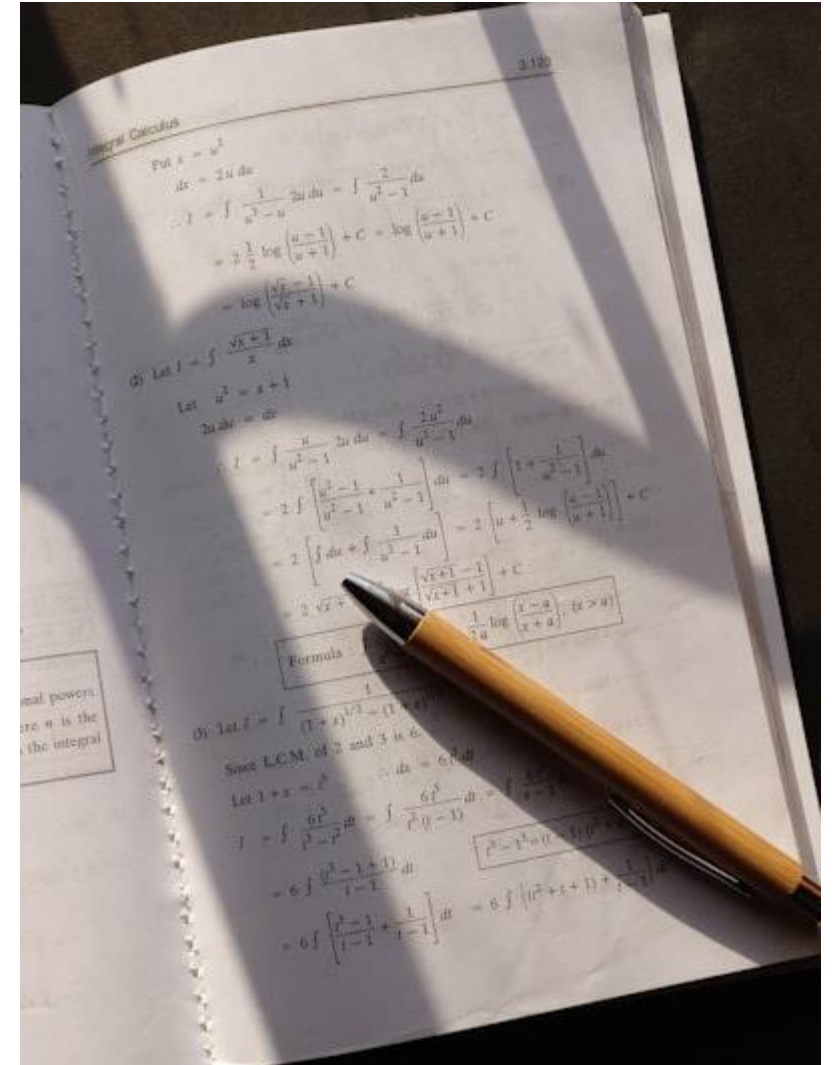 3.120
Integral Calculus
Put x = u²
dx = 2u du
∴ I = ∫ 1/(u³ − u) 2u du = ∫ 2/(u² − 1) du
= 2 1/2 log ((u − 1)/(u + 1)) + C = log ((u − 1)/(u + 1)) + C
= log ((√x − 1)/(√x + 1)) + C
(2) Let I = ∫ √(x + 1)/x dx
Let u² = x + 1
2u du = dx
∴ I = ∫ u/(u² − 1) 2u du = ∫ 2u²/(u² − 1) du
= 2 ∫ [(u² − 1)/(u² − 1) + 1/(u² − 1)] du = 2 ∫ [1 + 1/(u² − 1)] du
= 2 [∫ du + ∫ 1/(u² − 1) du] = 2 [u + 1/2 log ((u − 1)/(u + 1))] + C
= 2 √x + [(√(x+1) − 1)/(√(x+1) + 1)] + C
Formula 1/2a log ((x − a)/(x + a)), (x > a)
(3) Let I = ∫ 1/((1 + x)^1/2 − (1 + x)
Since L.C.M. of 2 and 3 is 6.
Let 1 + x = t⁶ ∴ dx = 6t⁵ dt
I = ∫ 6t⁵/(t³ − t²) dt = ∫ 6t⁵/(t² (t − 1)) dt = ∫ 6t³/(t − 1)
= 6 ∫ (t³ − 1 + 1)/(t − 1) dt
t³ − 1³ = (t − 1) (t² +
= 6 ∫ [(t³ − 1)/(t − 1) + 1/(t − 1)] dt = 6 ∫ [(t² + t + 1) + 1/(t − 1)] dt
onal powers.
ere n is the
the integral